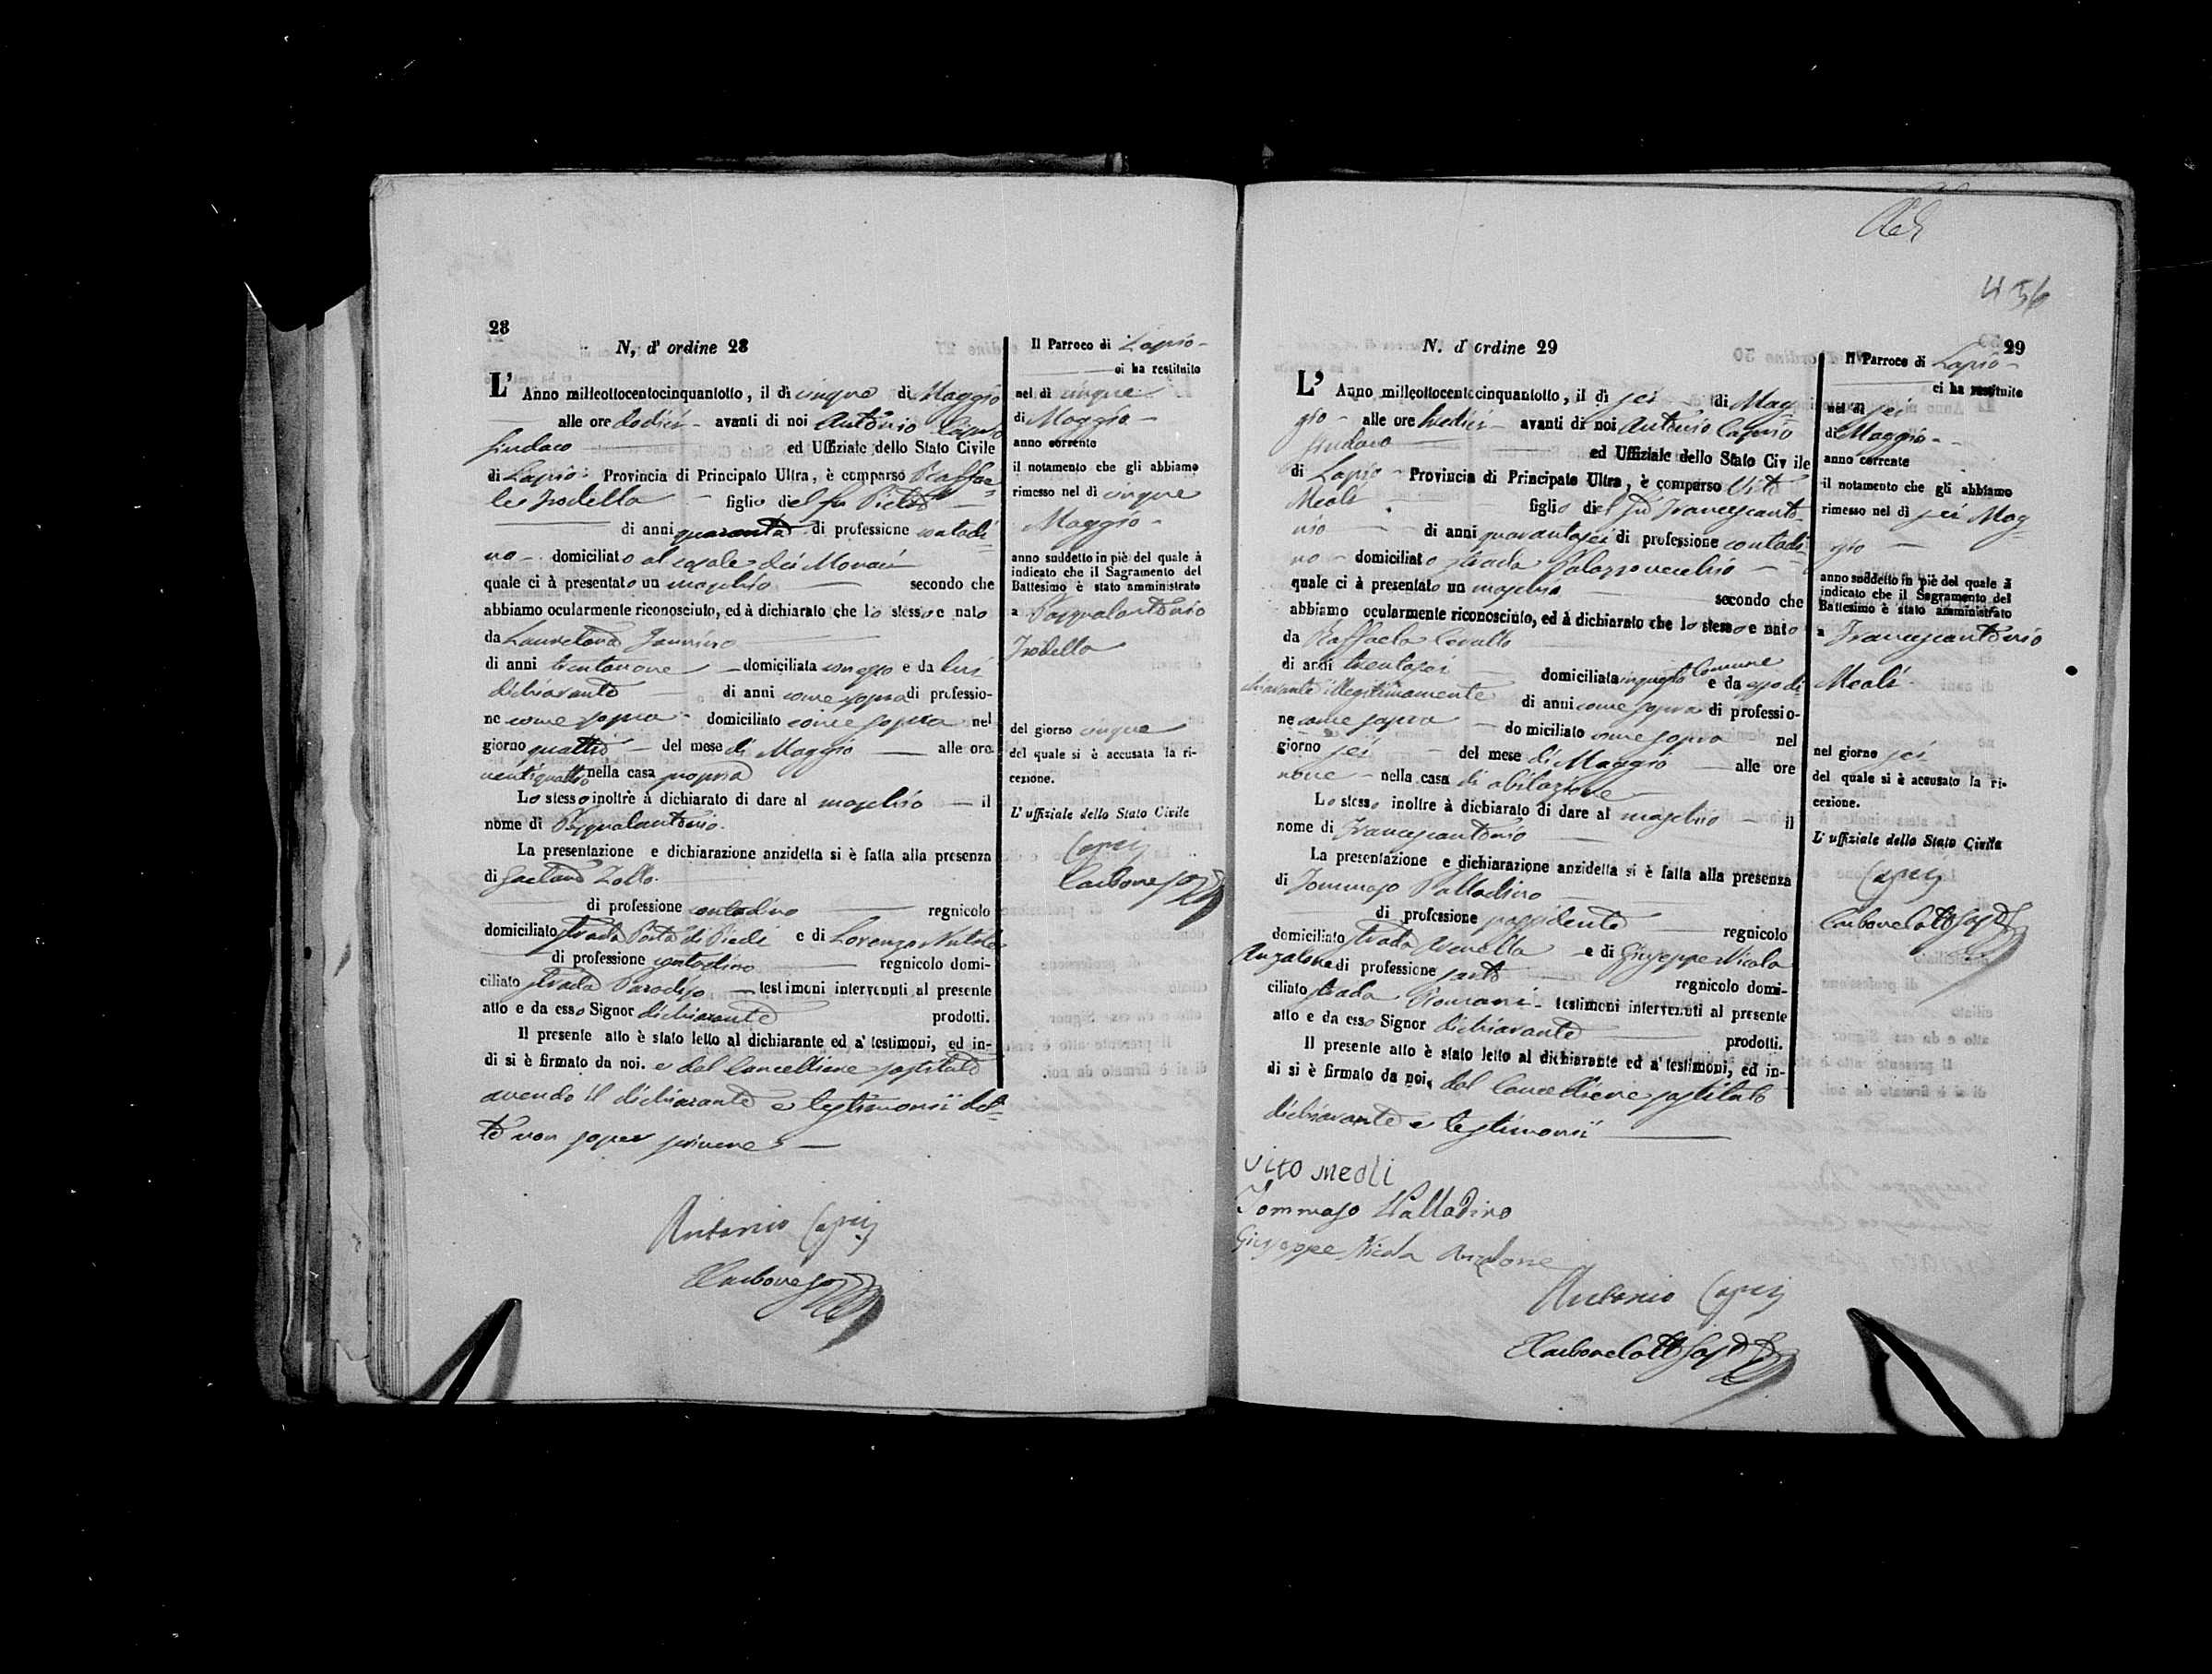 28
N, d' ordine 28
L' Anno milleottocentocinquantotto, il dì cinque di Maggio
alle ore dodici avanti di noi Antonio
Sindaco ed Uffiziale dello Stato Civile
di Lapio Provincia di Principato Ultra, è comparso Raffae=
le figlio del fu Pietro
di anni quaranta di professione contadi=
no domiciliato al casale dei
quale ci à presentato un maschio secondo che
abbiamo ocularmente riconosciuto, ed à dichiarato che lo stesso e nato
da
di anni trentanove domiciliata con esso e da lui
dichiarante di anni come sopra di professio-
ne come sopra domiciliato come sopra nel
giorno quattro del mese di Maggio alle ore
ventiquattro nella casa propria
Lo stesso inoltre à dichiarato di dare al maschio il
nome di Pasqualantonio.
La presentazione e dichiarazione anzidetta si è fatta alla presenza
di Gaetano Zollo.
di professione contadino regnicolo
domiciliato strada Porta di Piedi e di Lorenzo
di professione contadino regnicolo domi-
ciliato strada testimoni intervenuti al presente
atto e da esso Signor dichiarante prodotti.
Il presente atto è stato letto al dichiarante ed a' testimoni, ed in-
di si è firmato da noi. e dal Cancelliere sostituto
avendo il dichiarante e testimonii det=
to non saper scrivere
Antonio
Il Parroco di Lapio
ci ha restituito
nel dì cinque
di Maggio
anno corrente
il notamento che gli abbiamo
rimesso nel dì cinque
Maggio
anno suddetto in piè del quale à
indicato che il Sagramento del
Battesimo è stato amministrato
a Pasqualantonio
del giorno cinque
del quale si è accusata la ri-
cezione.
L' uffiziale dello Stato Civile
456
29
N. d' ordine 29
L' Anno milleottocentocinquantotto, il dì sei di Mag=
gio alle ore avanti di noi Antonio
Sindaco ed Uffiziale dello Stato Civile
di Lapio Provincia di Principato Ultra, è comparso Vito
Meoli figlio del fu Francescanto=
nio di anni quarantasei di professione contadi=
no domiciliato strada Palazzo vecchio
quale ci à presentato un maschio secondo che
abbiamo ocularmente riconosciuto, ed à dichiarato che lo stesso e nato
da Raffaela
di anni trentasei domiciliata in questo Comune e da esso di=
chiarante illegitimamente di anni come sopra di professio-
ne come sopra domiciliato come sopra nel
giorno sei del mese di Maggio alle ore
nove nella casa di abitazione
Lo stesso inoltre à dichiarato di dare al maschio il
nome di Francescantonio
La presentazione e dichiarazione anzidetta si è fatta alla presenza
di Tommaso Palladino
di professione possidente regnicolo
domiciliato strada e di Giuseppe Nicola
Anzalone di professione sarto regnicolo domi-
ciliato strada testimoni intervenuti al presente
atto e da esso Signor dichiarante prodotti.
Il presente atto è stato letto al dichiarante ed a' testimoni, ed in-
di si è firmato da noi, dal Cancelliere sostituto
dichiarante e testimonii
Vito Meoli
Tommaso Palladino
Giuseppe Nicola Anzalone
Antonio
Il Parroco di Lapio
ci ha restituito
nel dì sei
di Maggio
anno corrente
il notamento che gli abbiamo
rimesso nel dì sei Mag=
gio
anno suddetto in piè del quale à
indicato che il Sagramento del
Battesimo è stato amministrato
a Francescantonio
Meoli
nel giorno sei
del quale si è accusato la ri-
cezione.
L' uffiziale dello Stato Civile